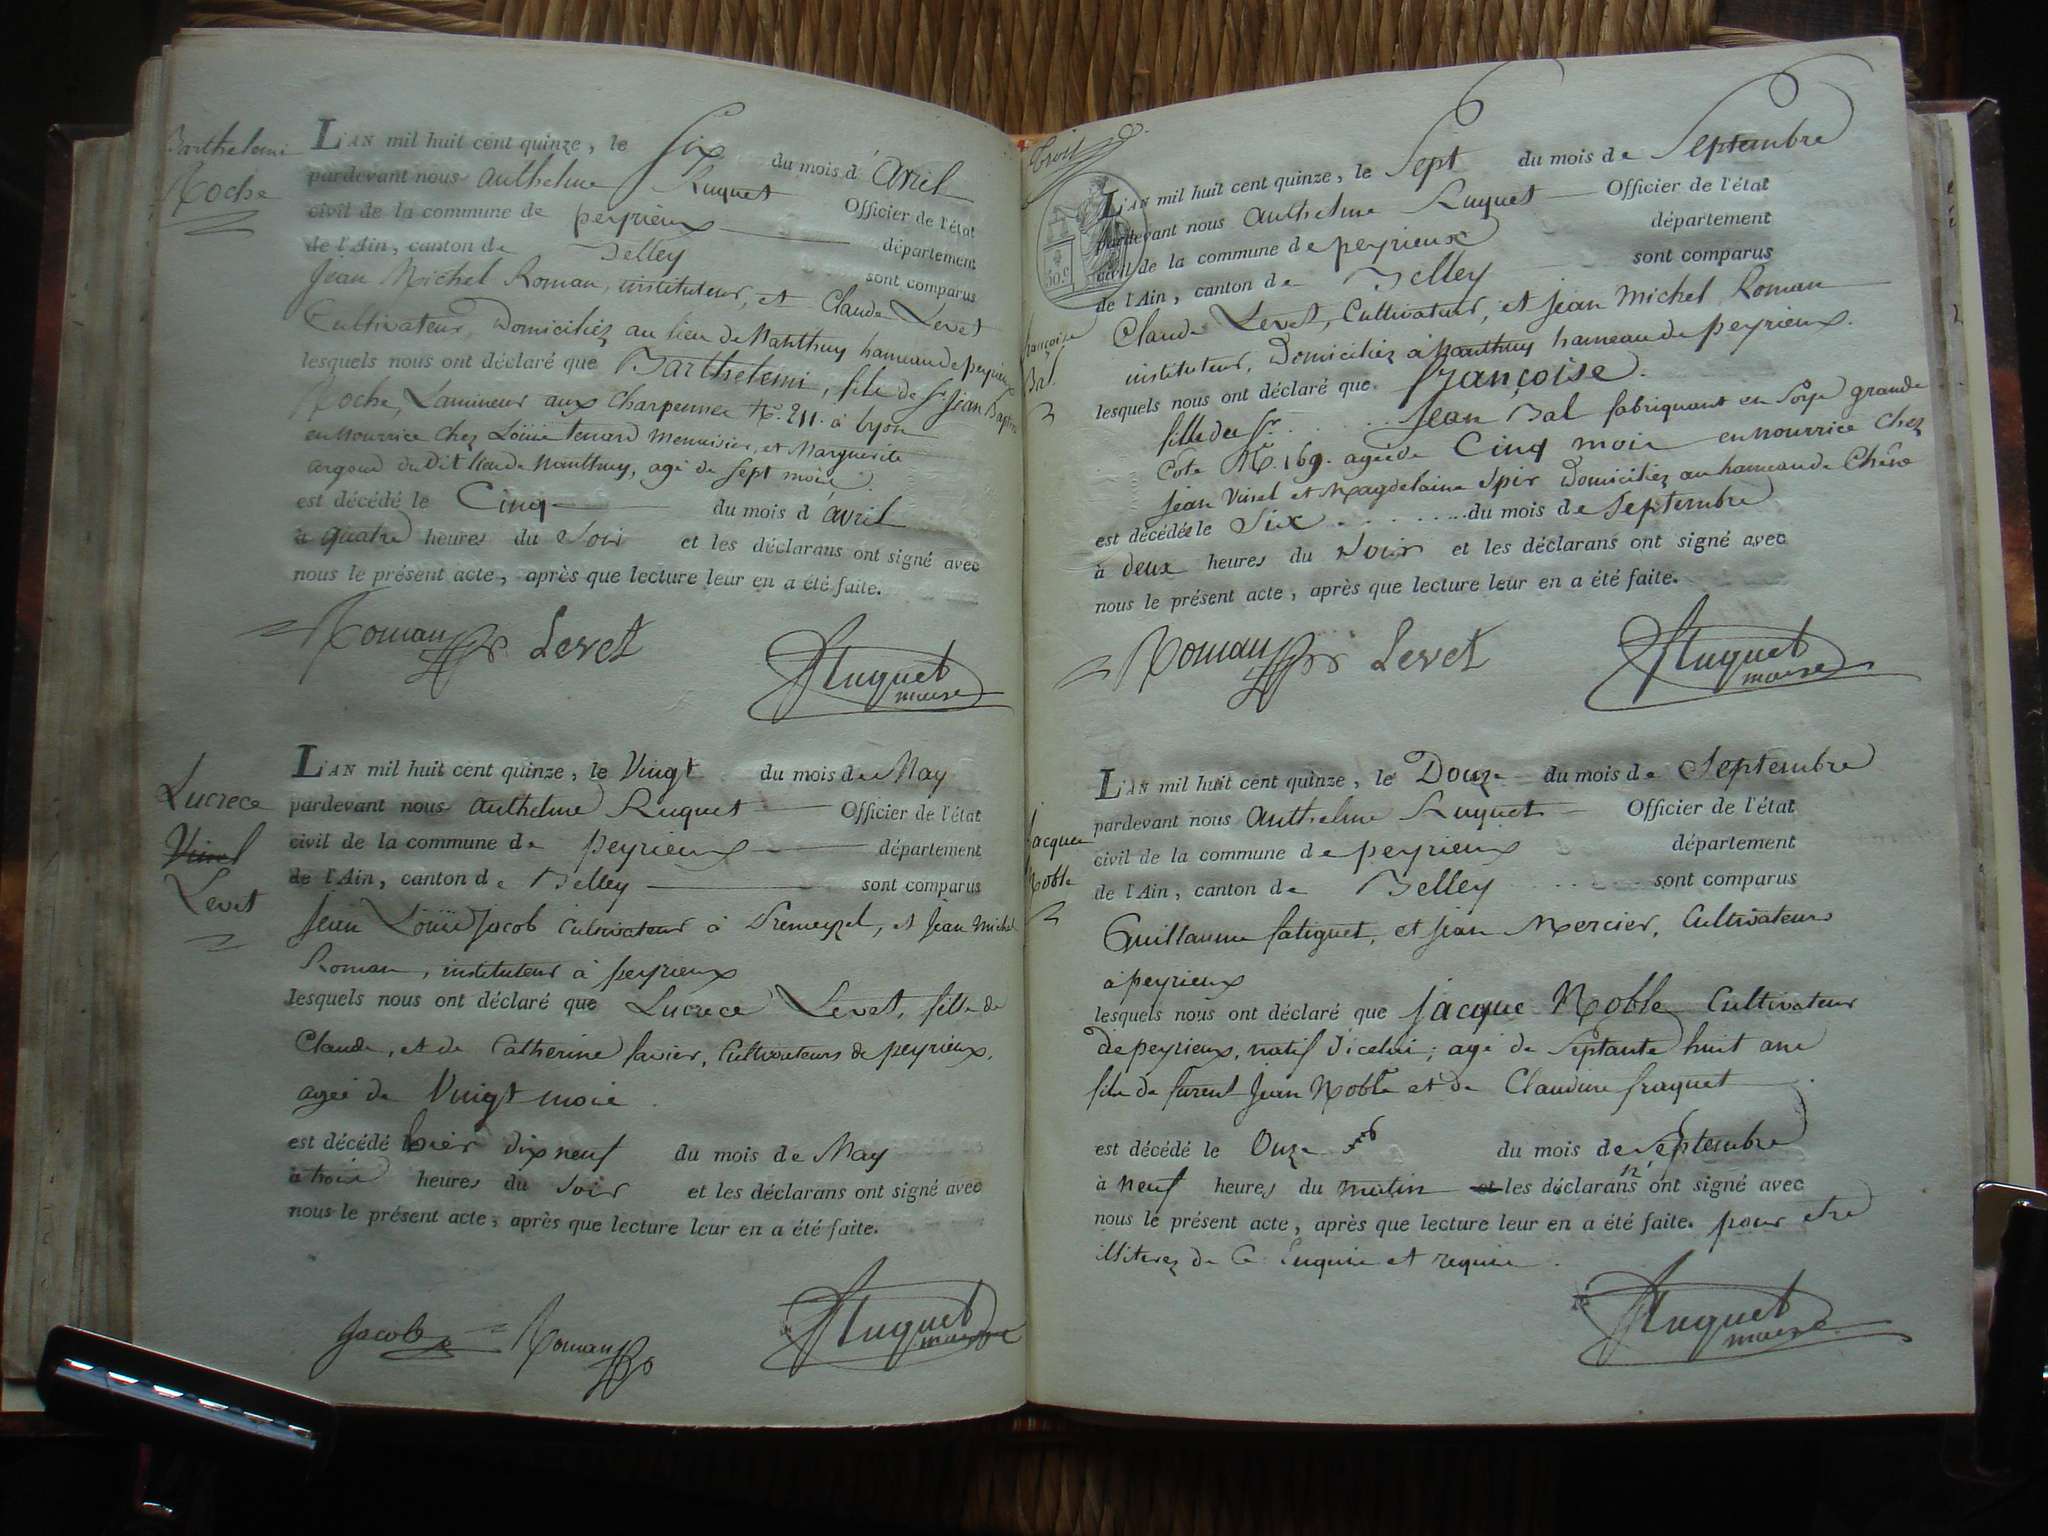 Barthelemi
Roche
L'AN mil huit cent quinze, le Six du mois d'Avril
pardevant nous Anthelme Ruquet Officier de l'état
civil de la commune de peyrieux département
de l'Ain, canton de Belley sont comparus
Jean Michel Roman, instituteur, et Claude Levet
Cultivateur, Domiciliéz au lieu de Nanthuy hameau de peyrieux
lesquels nous ont déclaré que Barthelemi, fils de Sr. Jean Baptiste
Roche, Lamineur aux Charpennes No. 211. à Lyon
en nourrice chez Menuisier, et Marguerite
argoud du Dit lieu de Nanthuy, agé de Sept mois
est décédé le Cinq du mois d'avril
à quatre heures du Soir et les déclarans ont signé avec
nous le présent acte, après que lecture leur en a été faite.
Roman Levet
Ruquet
maire
Lucrece
Levet
L'AN mil huit cent quinze, le Vingt du mois de May
pardevant nous Anthelme Ruquet Officier de l'état
civil de la commune de peyrieux département
de l'Ain, canton de Belley sont comparus
Jean Louis Jacob Cultivateur à Premeyzel, et Jean Michel
Roman, instituteur à peyrieux
lesquels nous ont déclaré que Lucrece Levet, fille de
Claude, et de Catherine Savier, Cultivateurs de peyrieux,
agée de Vingt mois
est décédé hier dix neuf du mois de May
à trois heures du Soir et les déclarans ont signé avec
nous le présent acte, après que lecture leur en a été faite.
Jacob Roman
Ruquet
maire
50.c
françoise
Bal
L'AN mil huit cent quinze, le Sept du mois de Septembre
pardevant nous Anthelme Ruquet Officier de l'état
civil de la commune de peyrieux département
de l'Ain, canton de Belley sont comparus
Claude Levet, Cultivateur, et Jean Michel Roman
instituteur, Domiciliéz à Nanthuy hameau de peyrieux.
lesquels nous ont déclaré que françoise.
fille de Sr. Jean Bal fabriquant en Soye grande
Cote No. 169. agée de Cinq mois en nourrice chez
Jean Vinel et Magdelaine Spir Domiciliéz au hameau de
est décédée le Six du mois de Septembre
à deux heures du Soir et les déclarans ont signé avec
nous le présent acte, après que lecture leur en a été faite.
Roman Levet
Ruquet
maire
Jacque
Noble
L'AN mil huit cent quinze, le Douze du mois de Septembre
pardevant nous Anthelme Ruquet Officier de l'état
civil de la commune de peyrieux département
de l'Ain, canton de Belley sont comparus
Guillaume fatiguet, et Jean Mercier, Cultivateurs
à peyrieux
lesquels nous ont déclaré que Jacque Noble Cultivateur
de peyrieux, natif d'icelui; agé de Septante huit ans
fils de furent Jean Noble et de Claudine fraquet
est décédé le Onze du mois de Septembre
à neuf heures du matin les déclarans n'ont signé avec
nous le présent acte, après que lecture leur en a été faite. pour etre
illiterez de ce Enquis et requis.
Ruquet
maire